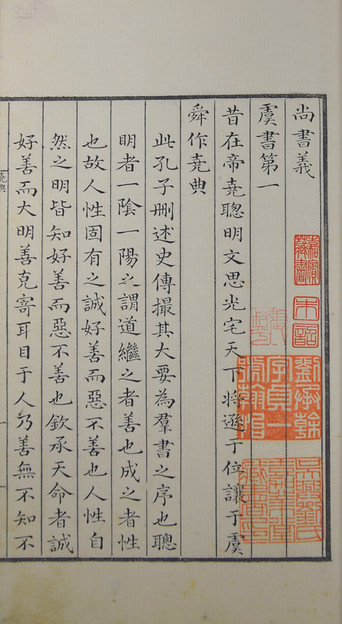 尚書義
虞書第一
昔在帝堯聰明文思光宅天下將遜于位讓于虞
舜作堯典
此孔子刪述史傳撮其大要為羣書之序也聰
明者一陰一陽之謂道繼之者善也成之者性
也故人性固有之誠好善而惡不善也人性自
然之明皆知好善而惡不善也欽承天命者誠
好善而大明善克寄耳目于人乃善無不知不
劉承榦
字貞一
號翰怡
吳興劉氏
嘉業堂
藏書印